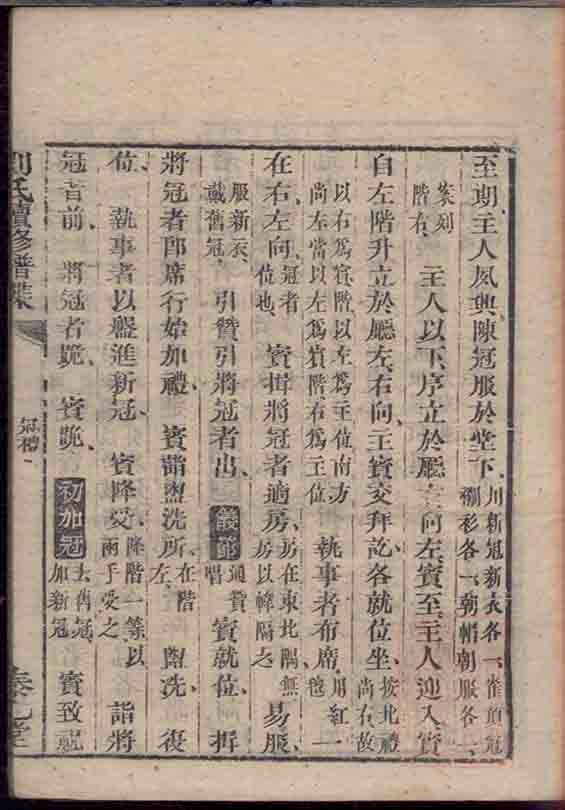 至期主人夙興陳冠服於堂下 用新冠新衣各一雀頂冠襴衫各一朝帽朝服各一
案列階右 主人以下序立於廳 向左賓至主人迎入賓
自左階升立於廳左右向主賓交拜訖各就位坐 按北禮尚右故
以右為賓階以左為主位南方尚左當以左為賓階右為主位 執事者布席 用紅毡一
在右左向 冠者位也 賓揖將冠者適房 房在東北隅無房以幃隔之 易服
服新衣戴舊冠 引贊引將冠者出 儀節 通贊唱 賓就位 揖
將冠者即席行始加禮 賓詣盥洗所 在階左 盥洗 復
位 執事者以盤進新冠 賓降受 降階一等以兩手受之 詣將
冠者前 將冠者跪 賓跪 初加冠 去舊冠加新冠 賓致祝
劉氏續修譜牒
冠禮一
堂